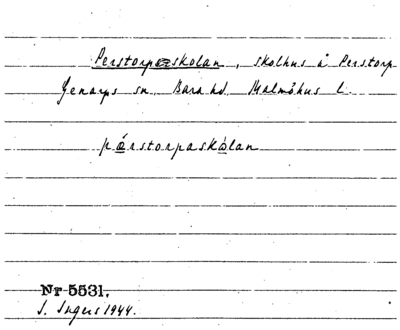 Perstorpaskolan, skolhus å Perstorp
Genarps sn. Bara hd. Malmöhus l.
pǻrstorpaskǻlan
Nr 5531.
I. Ingers 1944.